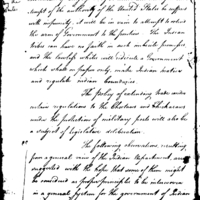 tempt of the authority of the United States be suffered
with impunity, it will be in vain to attempt to extend
the arm of Government to the frontiers. The Indian
tribes can have no faith in such imbecile promises,
and the lawless whites will ridicule a Government
which shall on paper only, make Indian treaties
and regulate indian boundaries.
The policy of extending trade under
certain regulations to the Choctaws and Chickasaws
under the protection of military posts will also be
a subject of legislative deliberation.
The following observations resulting
from a general view of the Indian Department are
suggested with the hope that some of them might
be considered as proper principles to be interwoven
in a general System for the government of Indian